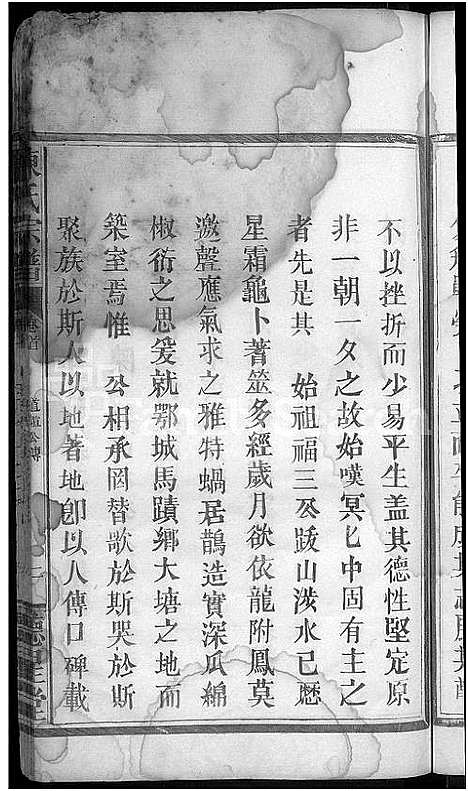 不以挫折而少易平生盖其德性堅定原
非一朝一夕之故始嘆冥〻中固有主之
者先是其 始祖福三公跋山涉水已歷
星霜龜卜著筮多經歲月欲依龍附鳳莫
邀聲應氣求之雅特蝸居鵲造實深瓜綿
椒衍之思爰就鄂城馬蹟鄉大塘之地而
築室焉惟 公相承罔替歌於斯哭於斯
聚族於斯人以地著地卽以人傳口碑載
陳氏宗譜 卷首